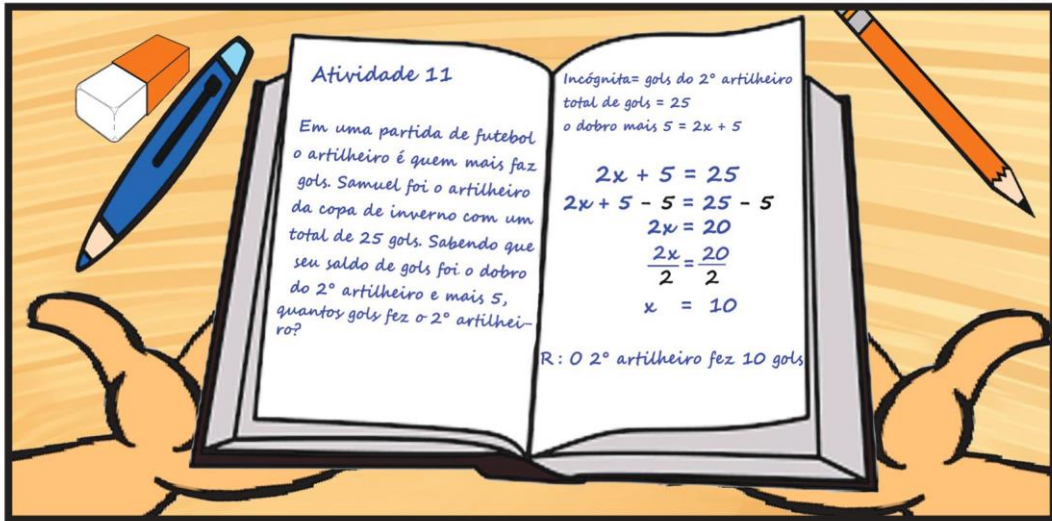 Atividade 11
Em uma partida de futebol
o artilheiro é quem mais faz
gols. Samuel foi o artilheiro
da copa de inverno com um
total de 25 gols. Sabendo que
seu saldo de gols foi o dobro
do 2° artilheiro e mais 5,
quantos gols fez o 2° artilhei-
ro?
Incógnita= gols do 2° artilheiro
total de gols = 25
o dobro mais 5 = 2x + 5
2x + 5 = 25
2x + 5 - 5 = 25 - 5
2x = 20
2x = 20
2 2
x = 10
R: O 2° artilheiro fez 10 gols